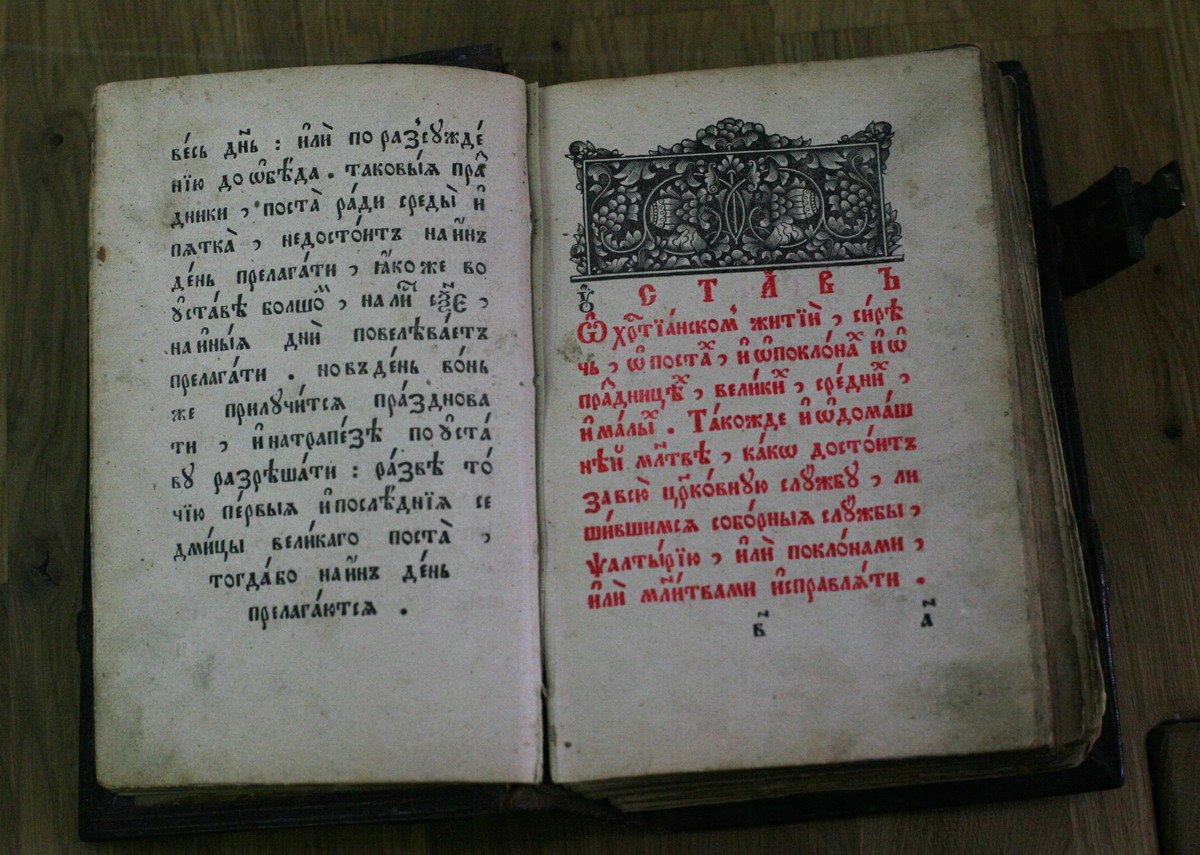 ве́сь дн҃ь : и҆лѝ по раз̾сꙋжде́
нїю до ѡ҆бѣ́да . таковы́ѧ пра́
дники , поста̀ ра́ди среды̀ и҆
пѧтка̀ , недосто́итъ на и҆́нъ
де́нь прелага́ти , ꙗ҆́коже во
ᲂу҆ста́вѣ болшо́ , на ли́
на и҆ны́ѧ дни̑ повелѣва́етъ
прелага́ти . но въ де́нь во́нь
же прилꙋчи́тсѧ пра́зднова
ти , и҆ на трапе́зѣ по ᲂу҆ста́
вꙋ разрѣша́ти : ра́звѣ то́
чїю пе́рвыѧ и҆ послѣ́днїѧ се
дми́цы вели́каго поста̀ ,
тогда́ бо на и҆́нъ де́нь
прелага́ютсѧ .
Оу҆СТА́ВЪ
Ѡ҆ хрⷭ҇тїа́нском̾ житїѝ , си́рѣ
чь , ѡ҆ постаⷯ , и҆ ѡ҆ покло́наⷯ и҆ ѡ҆
пра́дницѣⷯ , вели́киⷯ , сре́дниⷯ ,
и҆ ма́лыⷯ . Та́кожде и҆ ѡ҆ дома́ш
нѣй мл҃твѣ , ка́кѡ досто́итъ
за всю̀ цр҃ко́внꙋю слꙋ́жбꙋ , ли
ши́вшимсѧ собо́рныѧ слꙋ́жбы ,
ѱалты́рїю , и҆лѝ покло́нами ,
и҆лѝ мл҃и́твами и҆справлѧ́ти .
в҃ а҃